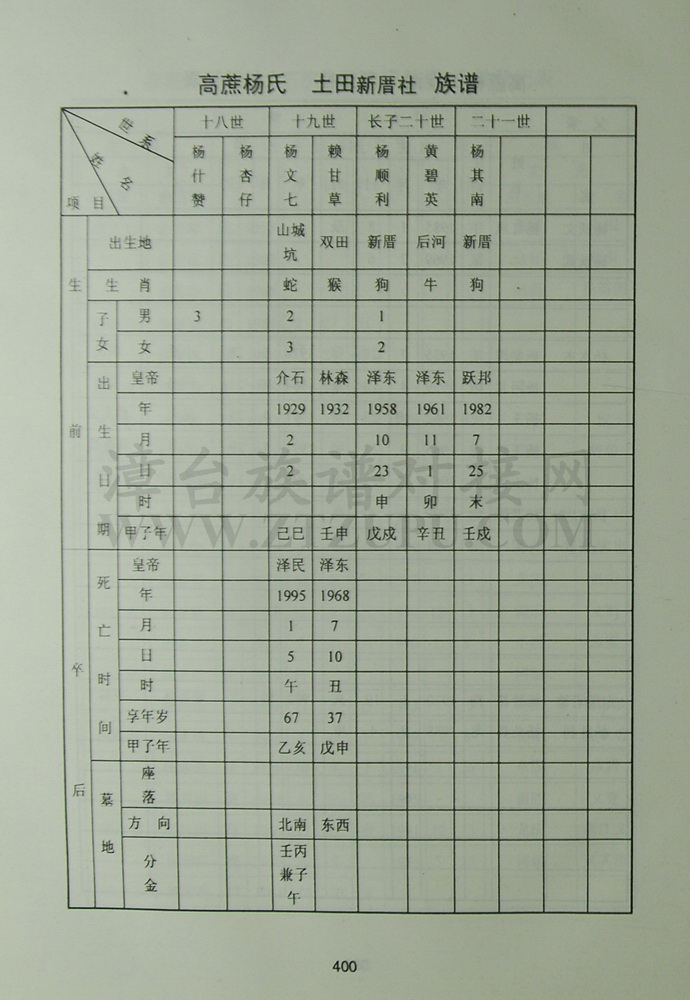 高蔗杨氏 土田新厝社 族谱
世系 十八世 十九世 长子二十世 二十一世
姓名 项目 杨什赞 杨杏仔 杨文七 赖甘草 杨顺利 黄碧英 杨其南
生前 出生地 山城坑 双田 新厝 后河 新厝
生肖 蛇 猴 狗 牛 狗
子女 男 3 2 1
女 3 2
出生日期 皇帝 介石 林森 泽东 泽东 跃邦
年 1929 1932 1958 1961 1982
月 2 10 11 7
日 2 23 1 25
时 申 卯 末
甲子年 己巳 壬申 戊戍 辛丑 壬戍
卒后 死亡时间 皇帝 泽民 泽东
年 1995 1968
月 1 7
日 5 10
时 午 丑
享年岁 67 37
甲子年 乙亥 戊申
墓地 座落
方向 北南 东西
分金 壬丙兼子午
漳台族谱对接网
WWW.ZTZUPU.COM
400